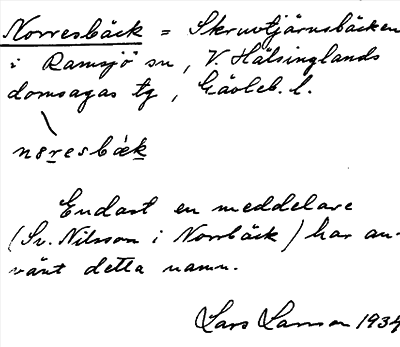 Norresbäck = Skruvtjärnsbäcken
i Ramsjö sn, V. Hälsinglands
domsagas tg, Gävleb. l.
nøresbäk
Endast en meddelare
(Sv. Nilsson i Norrbäck) har an-
vänt detta namn.
Lars Larsson 1934